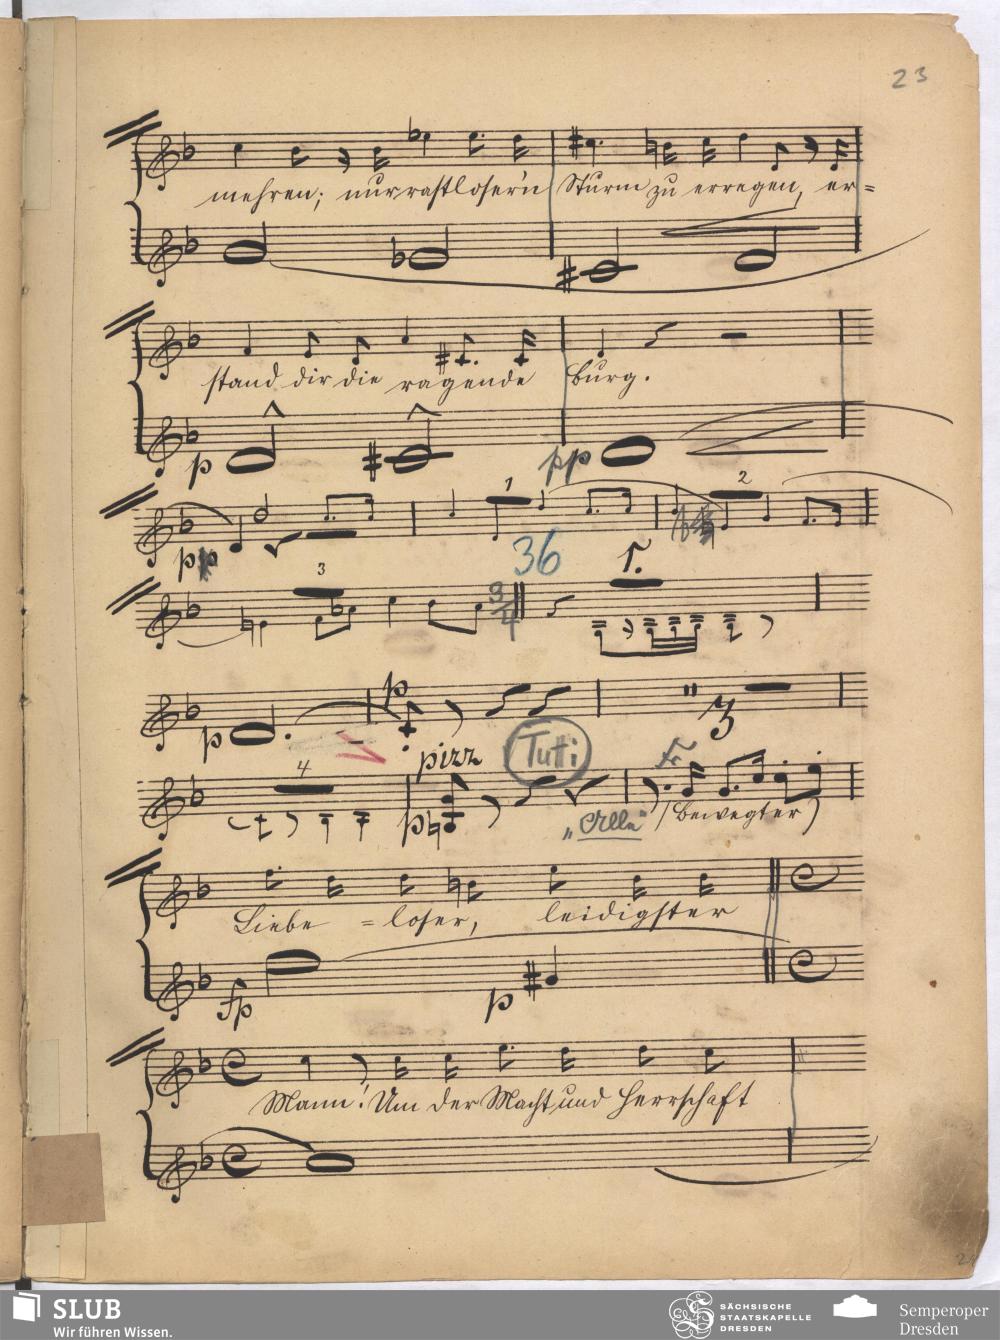 23
mehren; nur rastloser'n Sturm zu erregen, er=
stand dir die ragende Burg.
p
pp
1
2
pp
3
36
3/4
1.
p
p
3
pizz
Tutti
4
p
(bewegter)
Liebe = loser, leidigster
fp
p
Mann! Um der Macht und Herrschaft
SLUB
Wir führen Wissen.
SÄCHSISCHE
STAATSKAPELLE
DRESDEN
Semperoper
Dresden